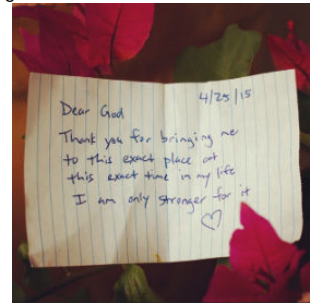 4/25/15
Dear God
Thank you for bringing me
to this exact place at
this exact time in my life
I am only stronger for it